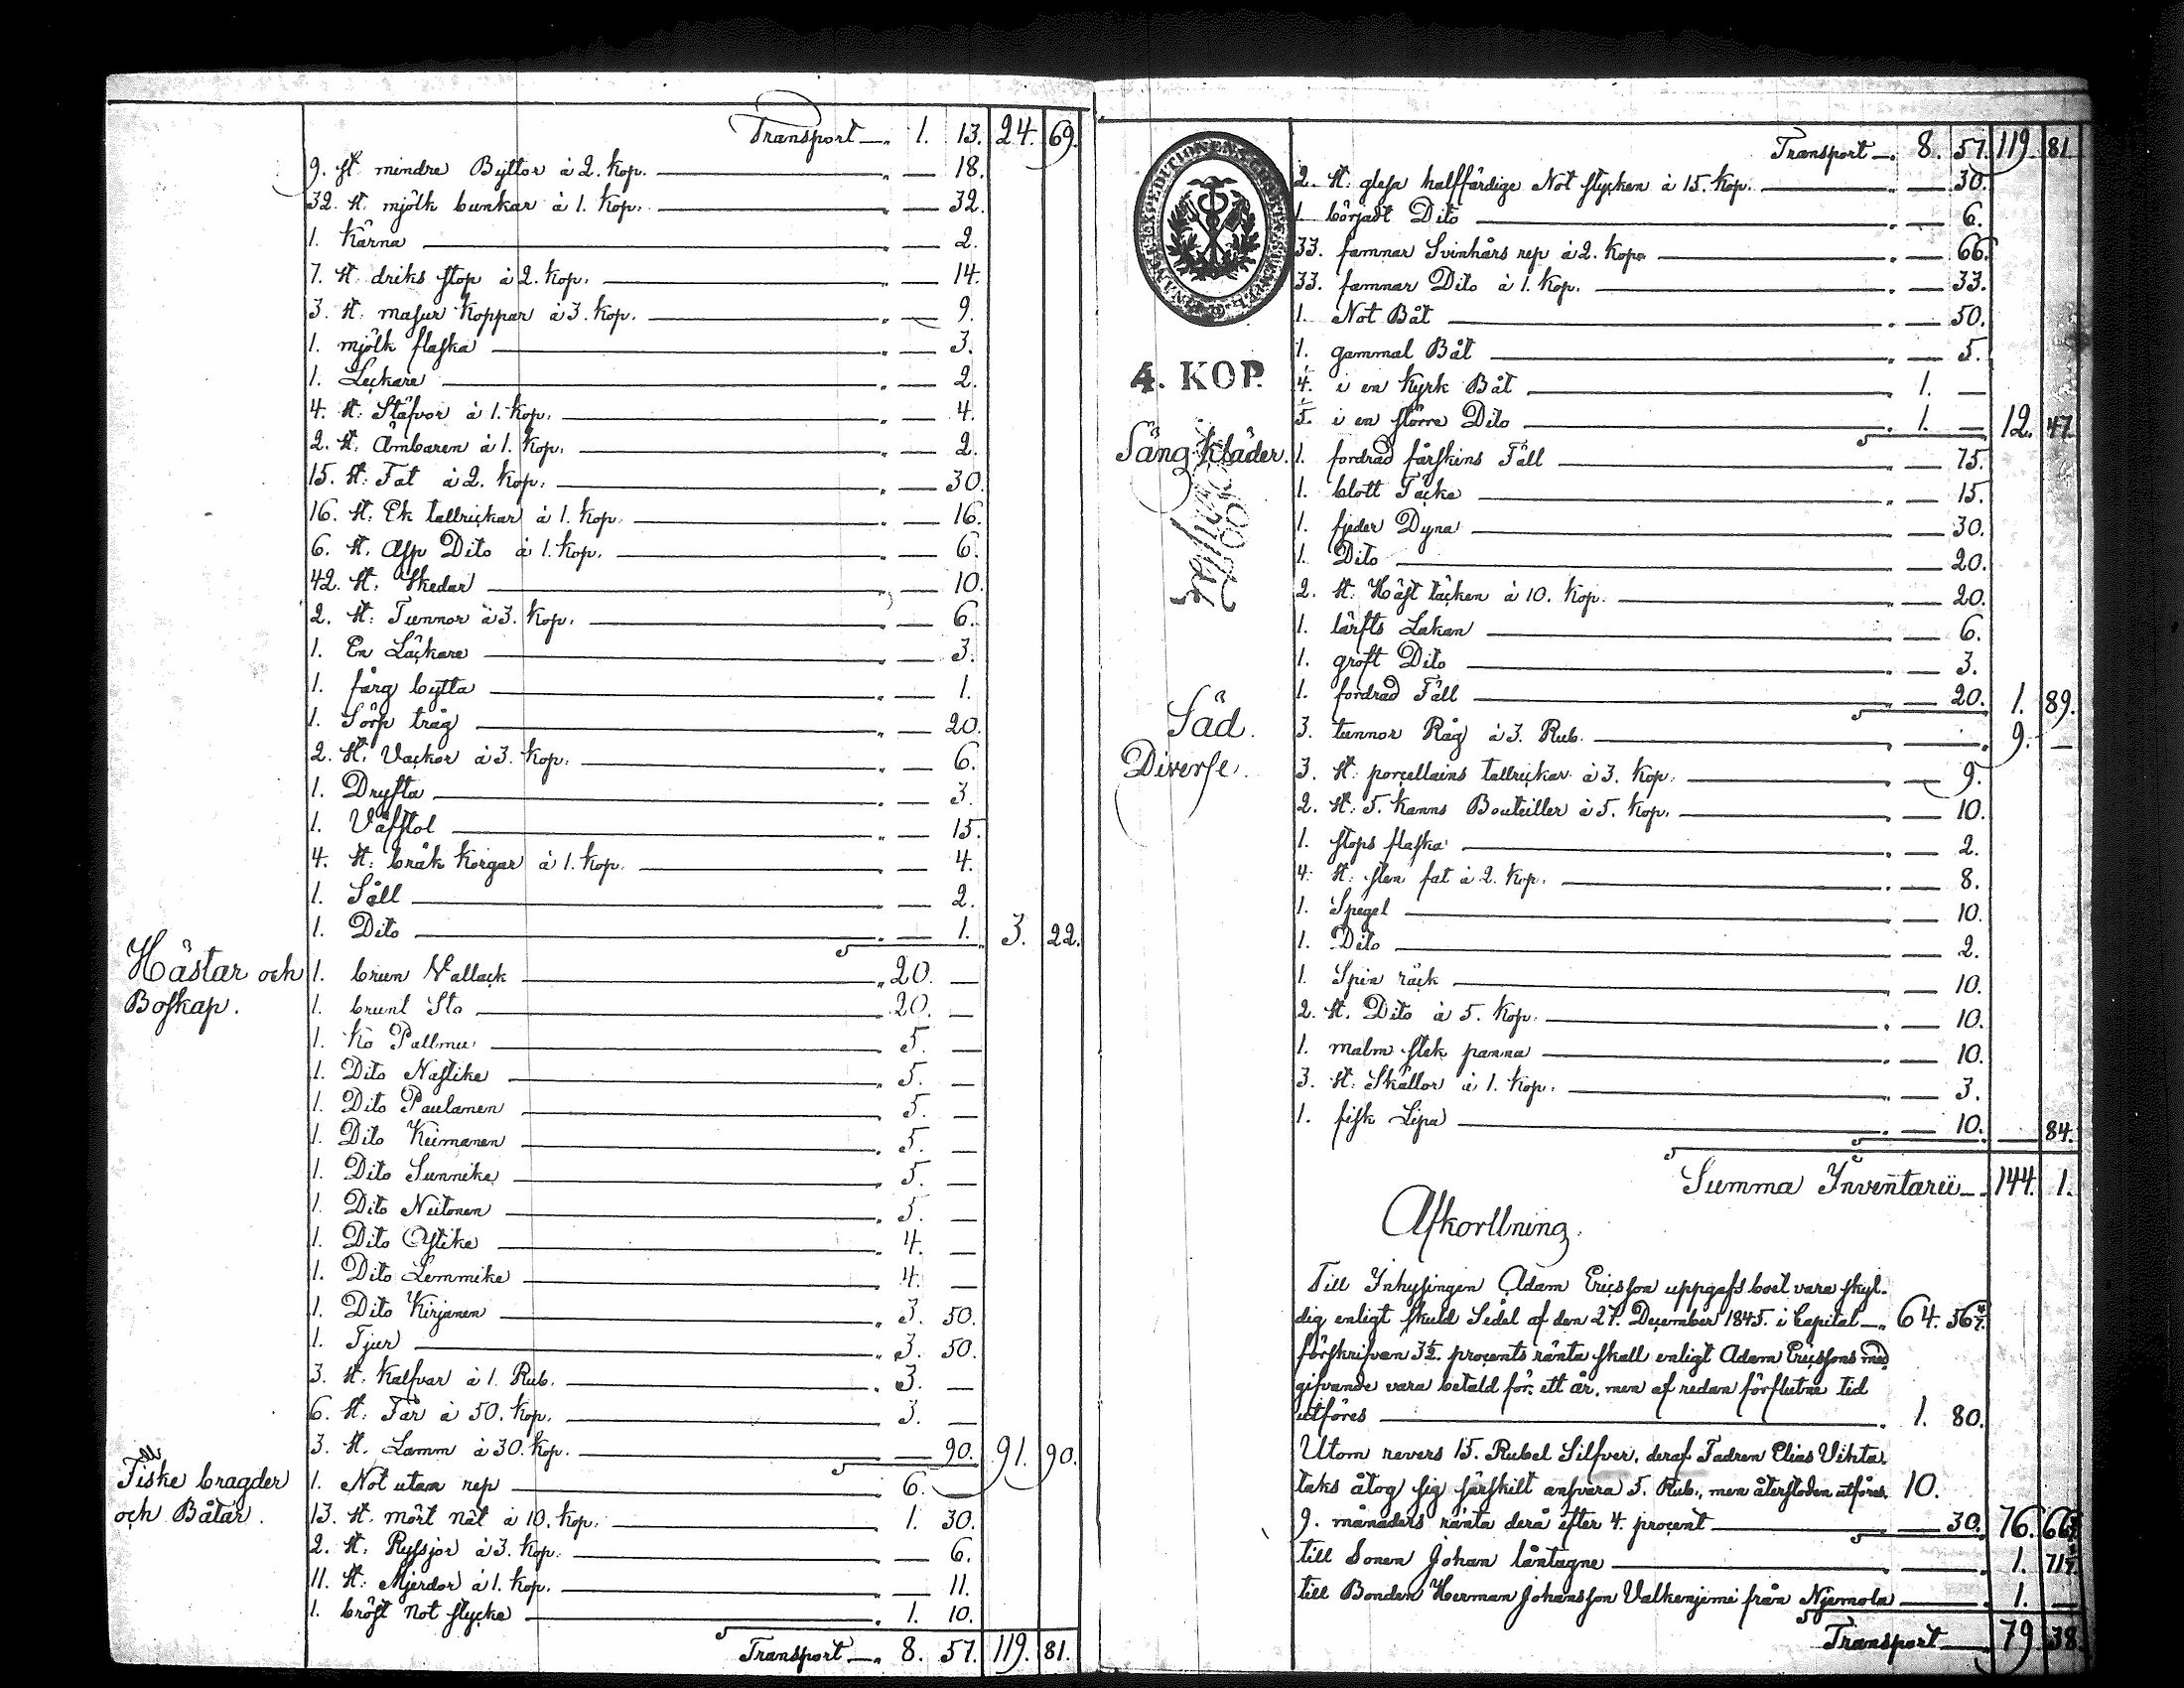 Transport 1. 13. 24. 69.
9. st. mindre Byttor à 2. Kop. 18.
32. st. mjölk bunkar à 1. Kop. 32.
1. Kärna 2.
7. st. driks stop à 2. Kop. 14.
3. st. masur Koppar à 3. Kop. 9.
1. mjölk flaska 3.
1. Leckare 2.
4. st. Stäfvor à 1. Kop. 4.
2. st. Ämbaren à 1. Kop. 2.
15. st. Fat à 2. Kop. 30.
16. st. Ek tallrickar à 1. Kop. 16.
6. st. Asp Dito à 1. Kop. 6.
42. st. Skedar 10.
2. st. Tunnor à 3. Kop. 6.
1. En Läckare 3.
1. färg bytta 1.
1. Sörp tråg 20.
2. st. Vackor à 3. Kop. 6.
1. Dryfta 3.
1. Väfstol 15.
4. st. bråk Korgar à 1. Kop. 4.
1. Såll 2.
1. Dito 1. 3. 22.
Hästar och 1. brun Vallack 20. —
Boskap. 1. brunt Sto 20. —
1. Ko Pallmu 5. —
1. Dito Nastike 5. —
1. Dito Paulanen 5. —
1. Dito Keimanen 5. —
1. Dito Sunnike 5. —
1. Dito Neitonen 5. —
1. Dito Ostike 4. —
1. Dito Lemmike 4. —
1. Dito Kirjanen 3. 50.
1. Tjur 3. 50.
3. st. Kalfvar à 1. Rub. 3. —
6. st. Får à 50. Kop. 3. —
3. st. Lamm à 30. Kop. 90. 91. 90.
Fiske bragder 1. Not utan rep 6. —
och Båtar. 13. st. mört nät à 10. Kop. 1. 30.
2. st. Ryssjor à 3. Kop. 6.
11. st. Mjerdor à 1. Kop. 11.
1. bröst not stycke 1. 10.
Transport 8. 57. 119. 81.
Transport 8. 57. 119. 81.
2. st. glesa halffärdige Not stycken à 15. Kop. 30.
1. börjadt Dito 6.
33. famnar Svinhårs rep à 2. Kop. 66.
33. famnar Dito à 1. Kop. 33.
1. Not Båt 50.
1. gammal Båt 5.
4. KOP.
1/4. i en Kyrk Båt 1. —
1/5. i en större Dito 1. — 12. 47.
Säng Kläder. 1. fordrad fårskins Fäll 75.
1. blott Täcke 15.
1. fjeder Dyna 30.
1. Dito 20.
2. st. Häst täcken à 10. Kop. 20.
1. lärfts Lakan 6.
1. groft Dito 3.
1. fordrad Fäll 20. 1. 89.
Säd. 3. tunnor Råg à 3. Rub. 9. —
Diverse. 3. st. porcellains tallrickar à 3. Kop. 9.
2. st. 5. Kanns Bouteiller à 5. Kop. 10.
1. stops flaska 2.
4. st. sten fat à 2. Kop. 8.
1. Spegel 10.
1. Dito 2.
1. Spin räck 10.
2. st. Dito à 5. Kop. 10.
1. malm stek panna 10.
3. st. Skällor à 1. Kop. 3.
1. fisk Lipa 10. 84.
Summa Inventarii 144. 1.
Afkortning.
Till Inhysingen Adam Ericsson uppgafs boet vara skyl-
dig enligt skuld Sedel af den 27. December 1845. i Capital 64. 56 4/7.
förskrifven 3½. procents ränta skall enligt Adam Ericssons med
gifvande vara betald för ett år, men af redan förflutne tid
utföres 1. 80.
Utom revers 15. Rubel Silfver, deraf Fadren Elias Vikta
taks åtog sig särskilt ansvara 5. Rub., men återstoden utföres 10.
9. månaders ränta derå efter 4. procent 30. 76. 66
till Sonen Johan låntagne 1. 71
till Bonden Herman Johansson Valkenjemi från Njemola 1. —
Transport 79 38